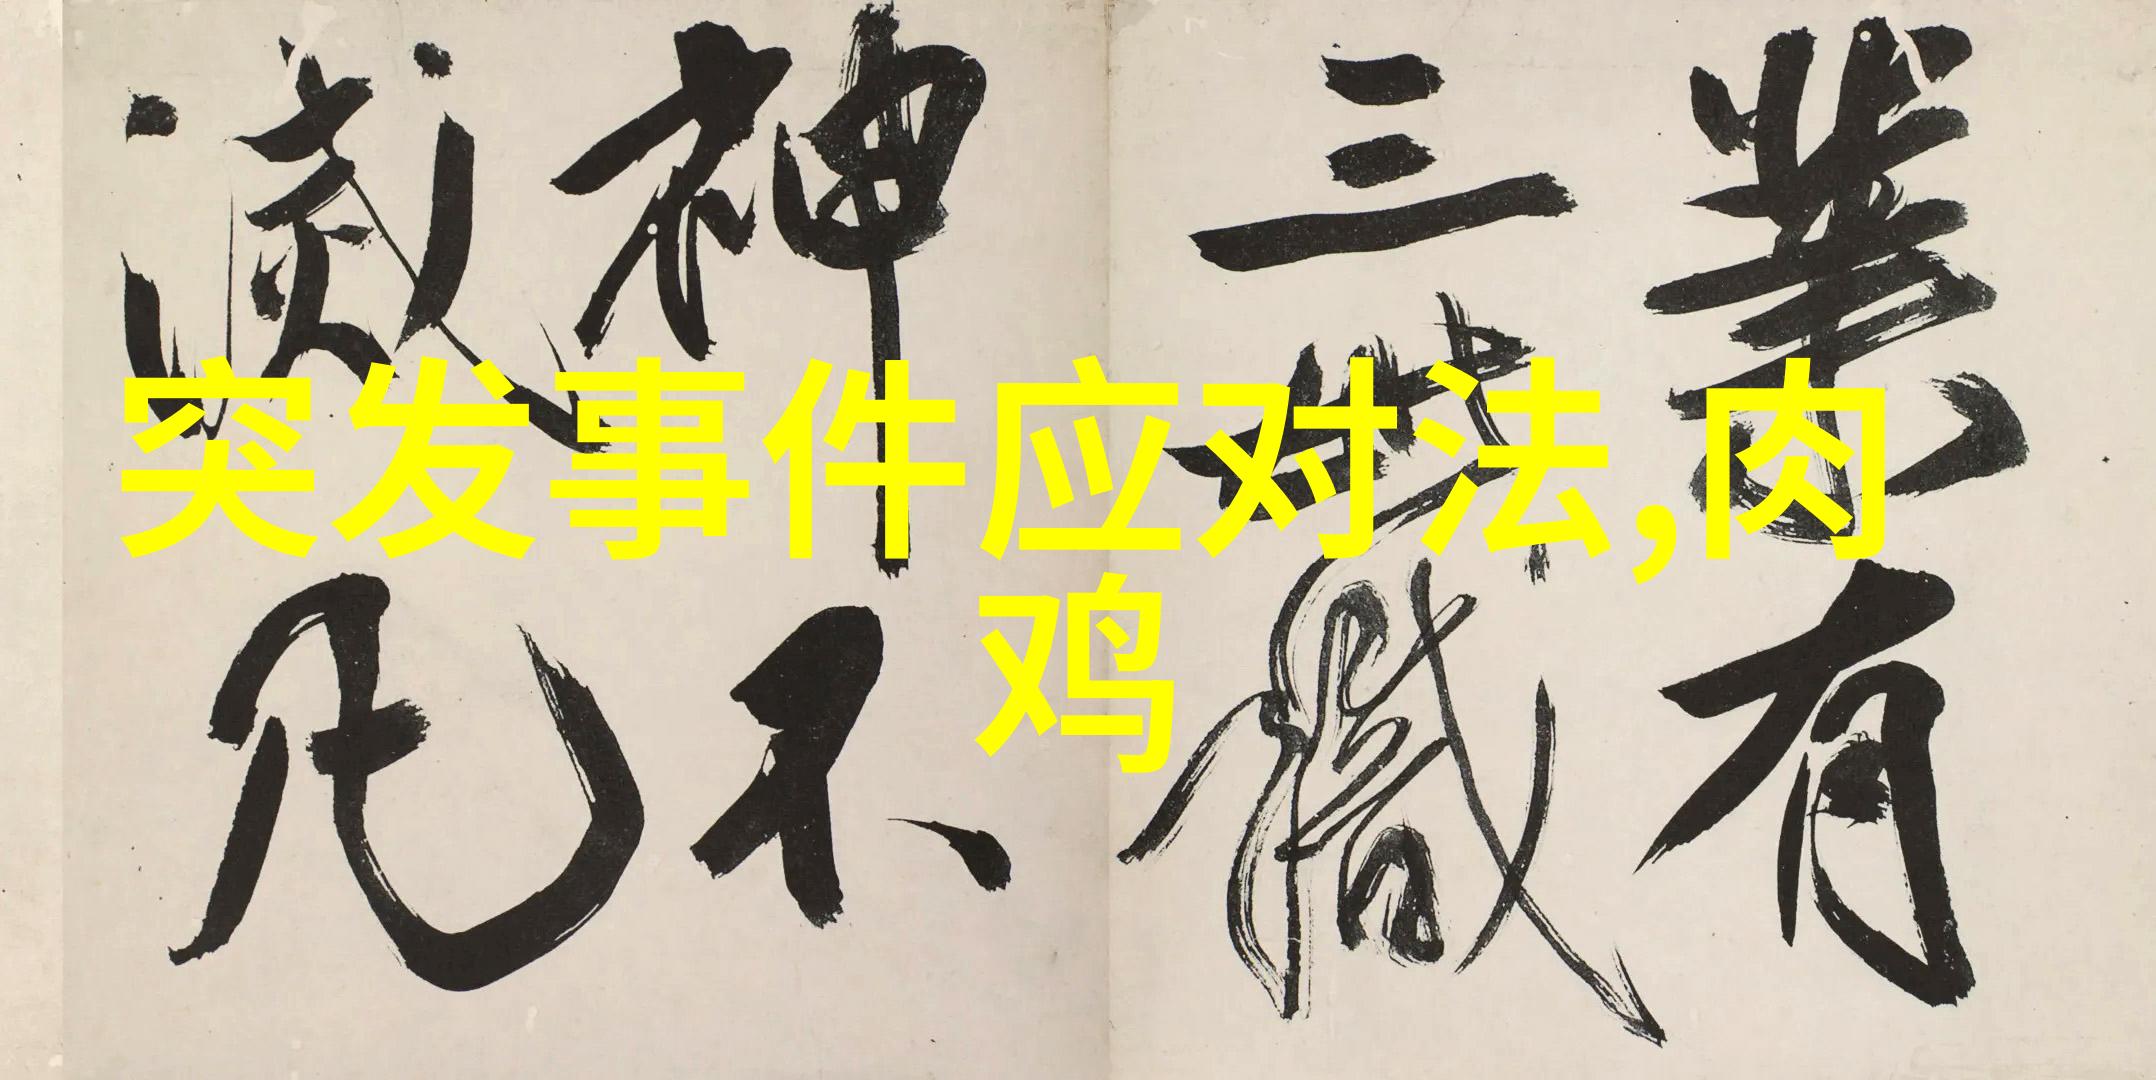 突发事件应对法,肉
鸡
業有
三世職
神不
滅凡